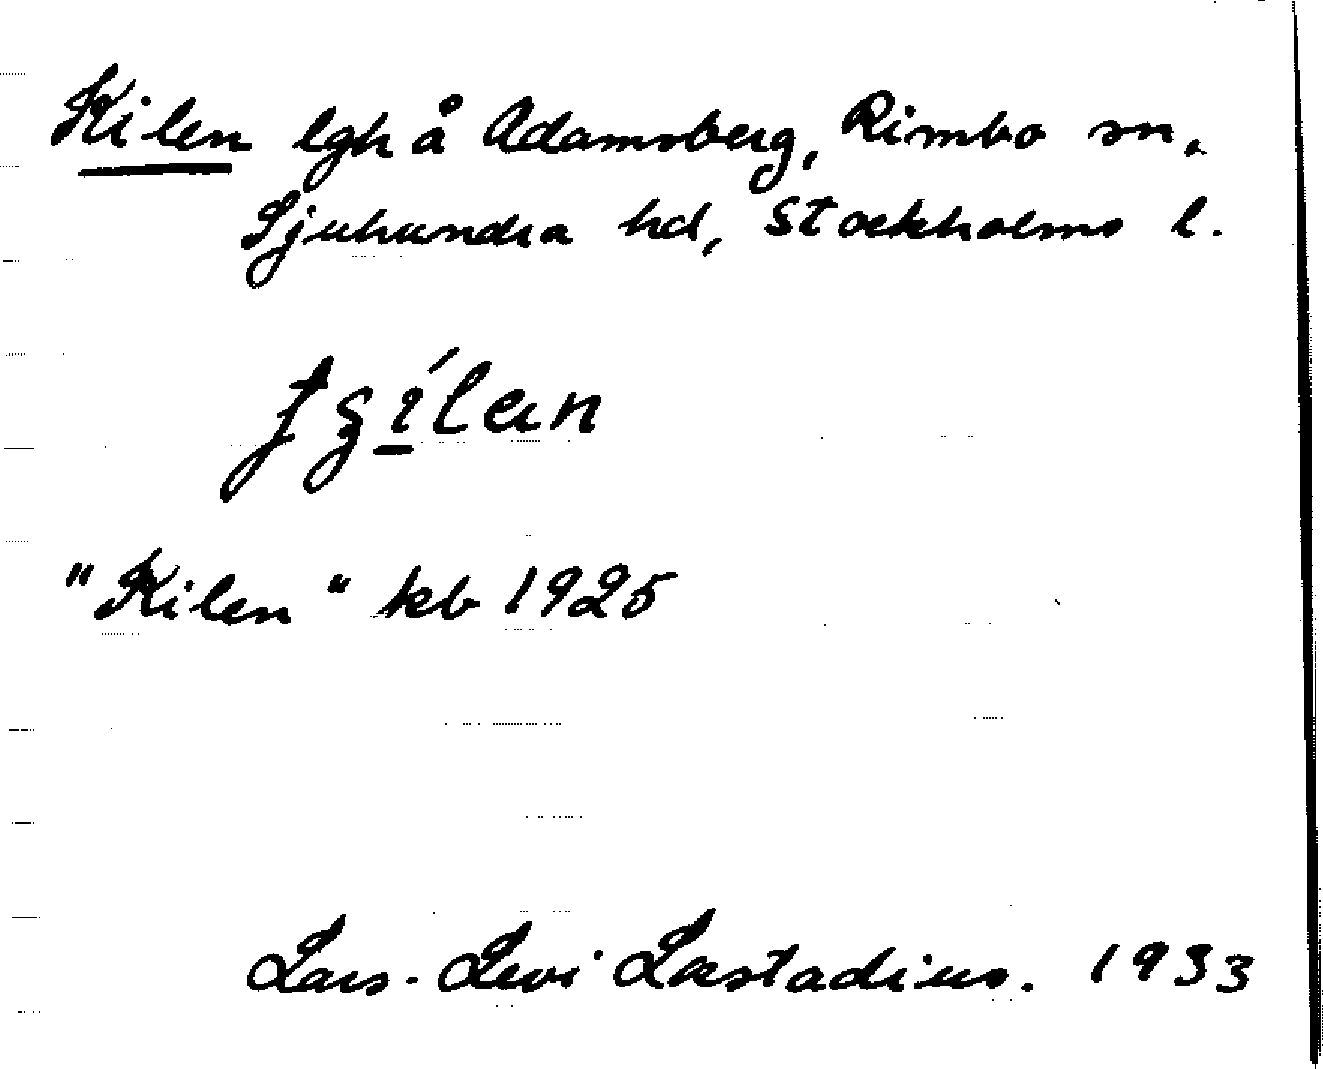 Kilen lgh å Adamsberg, Rimbo sn,
Sjuhundra hd, Stockholms l.
"Kilen" kb 1925
Lars-Levi Læstadius. 1933